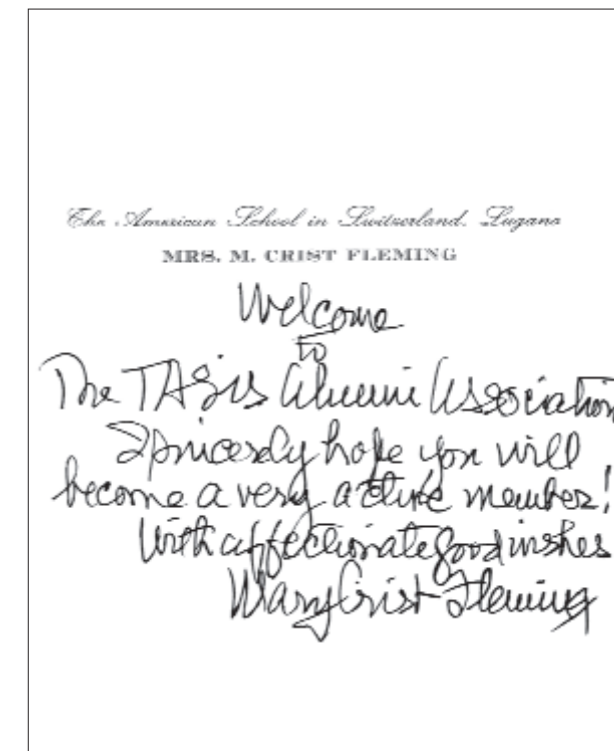 The American School in Switzerland, Lugano
MRS. M. CRIST FLEMING
Welcome
to
The TASIS Alumni Association
I sincerely hope you will
become a very active member!
With affectionate good wishes
Mary Crist Fleming